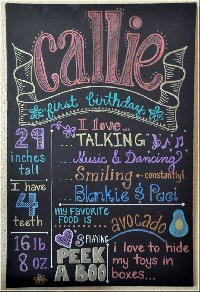 Callie
first birthday
29
inches
tall
I have
4
teeth
16 lb.
8 oz
I love...
TALKING
Music & Dancing
Smiling ← constantly!
Blankie & Paci
my FAVORITE
FOOD IS
avocado
PLAYING
PEEK
A BOO
i love to hide
my toys in
boxes...